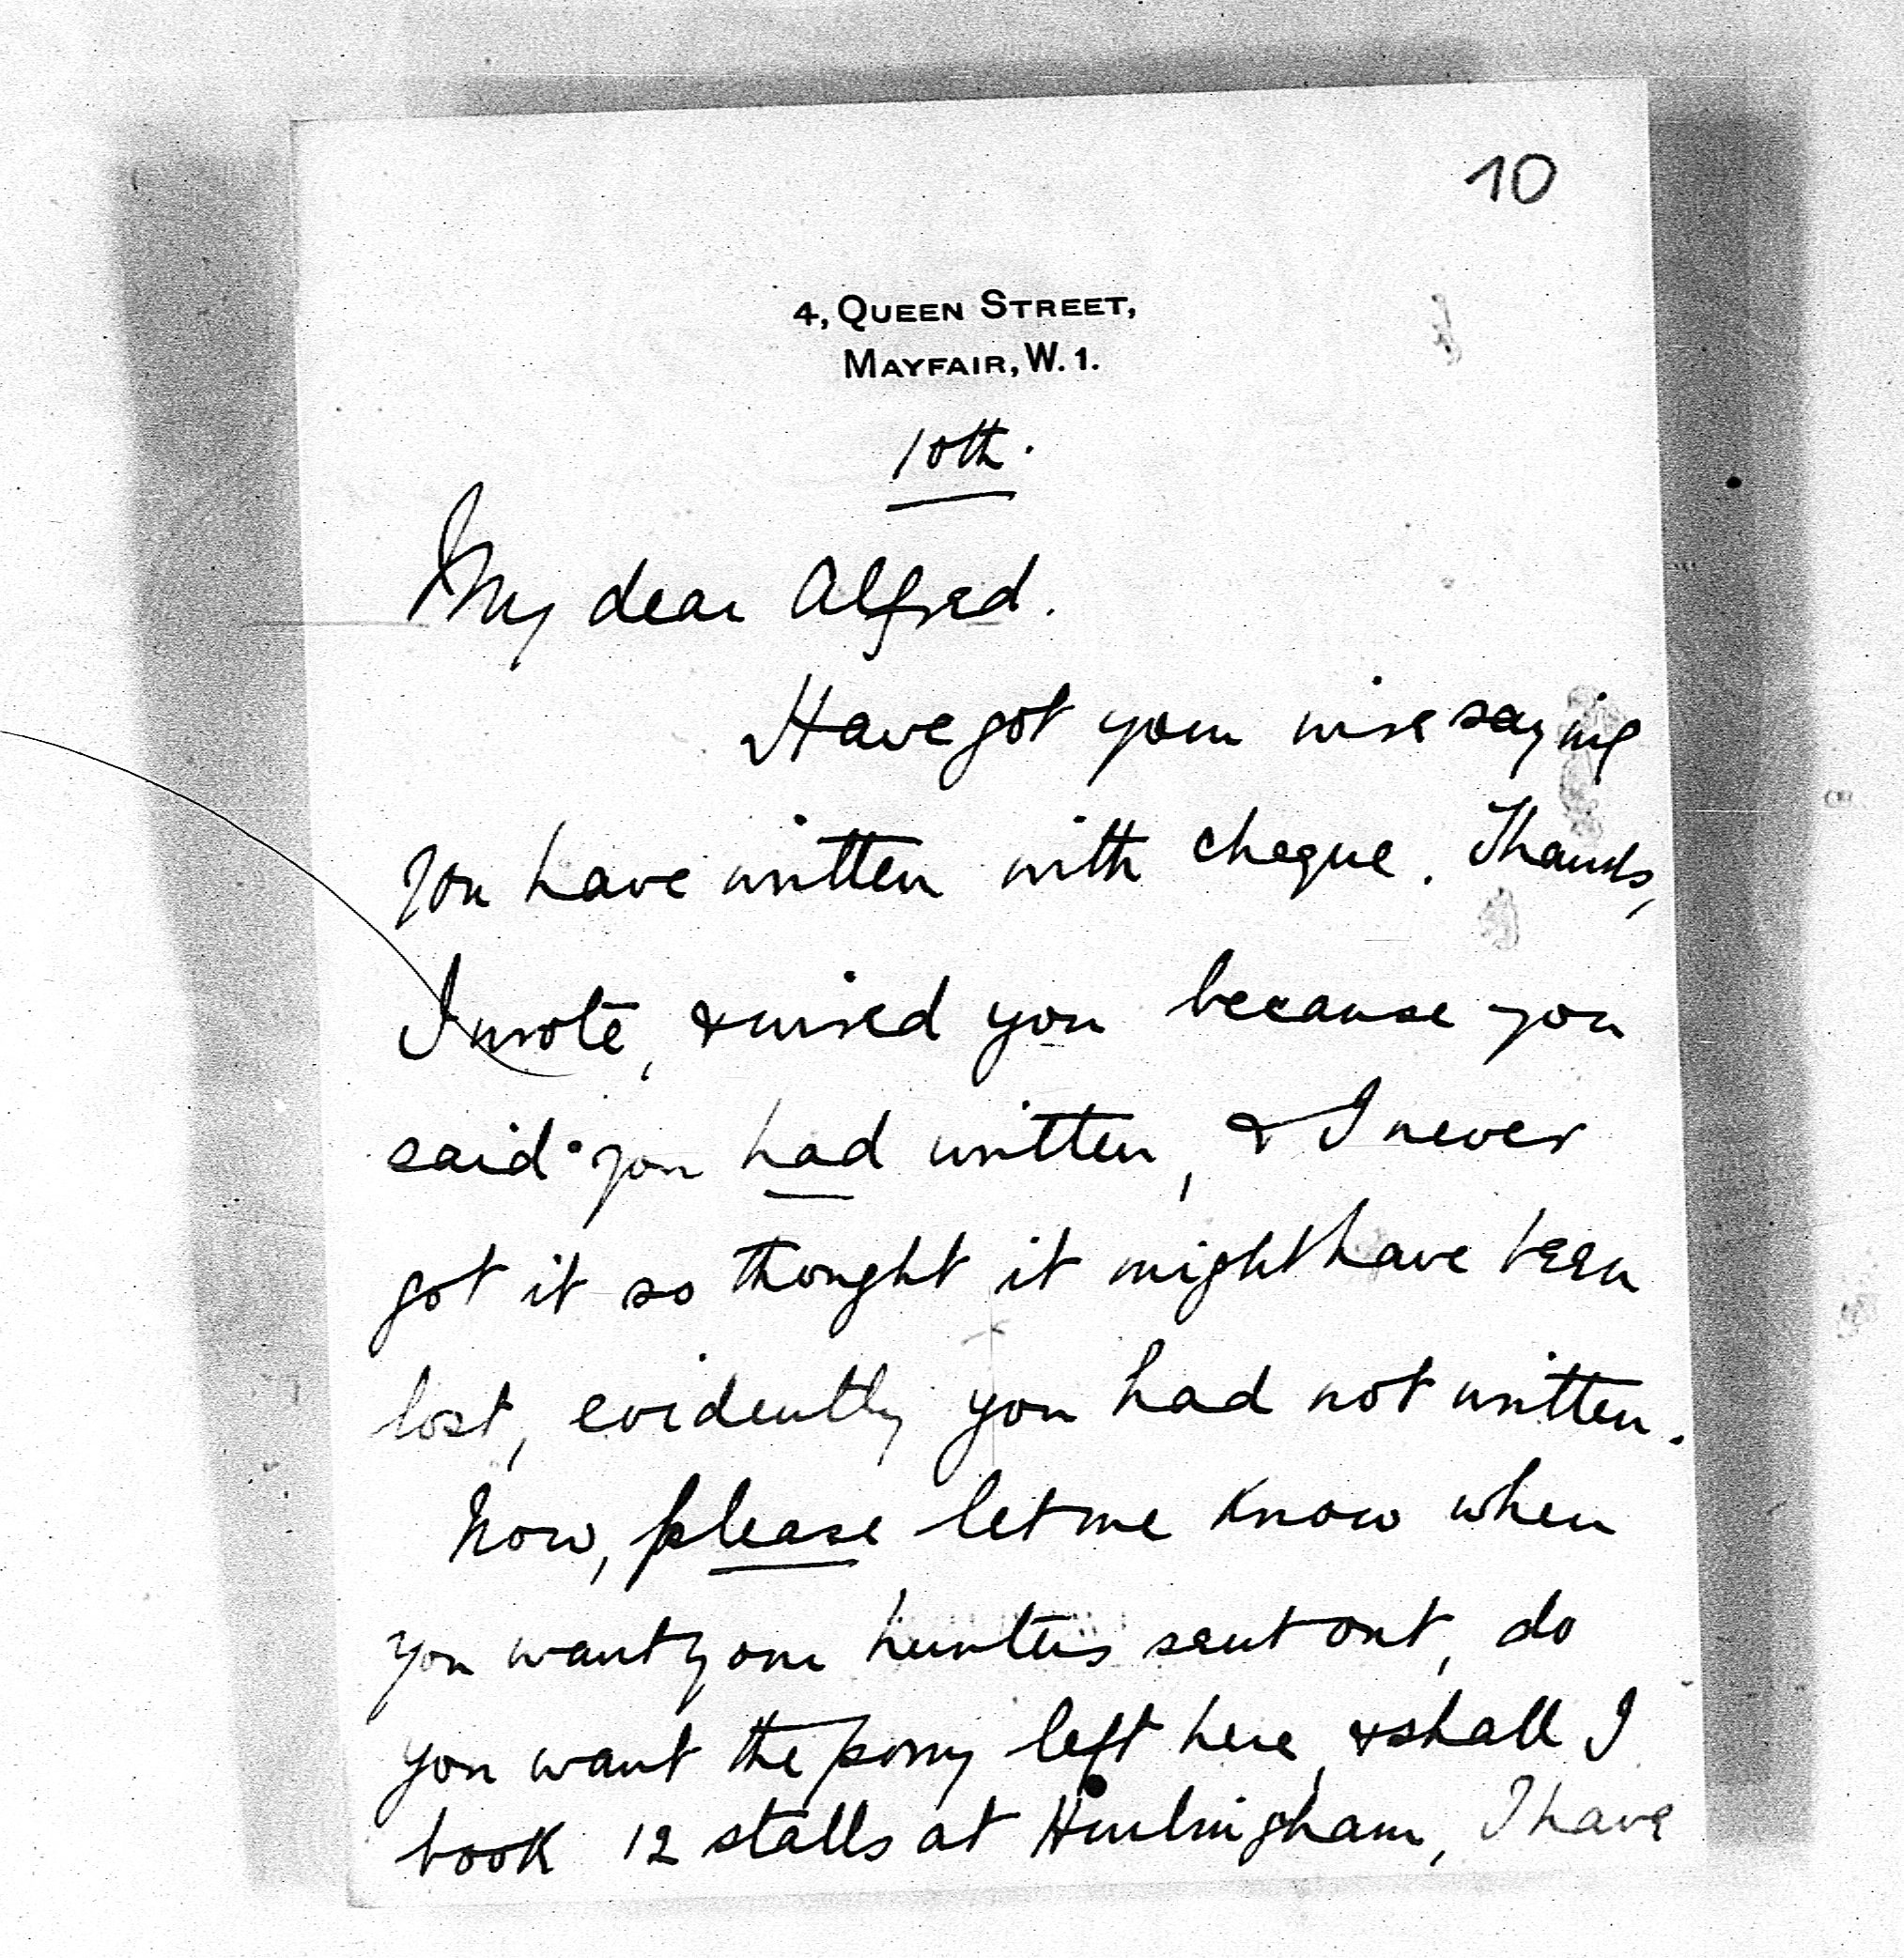 10
4, QUEEN STREET,
MAYFAIR, W. 1.
10th.
My dear Alfred.
Have got your wire saying
you have written with cheque. Thanks,
I wrote, & wired you because you
said you had written, & I never
got it so thought it might have been
lost, evidently you had not written.
Now, please let me know when
you want your hunters sent out, do
you want the pony left here, & shall I
book 12 stalls at Hurlingham, I have